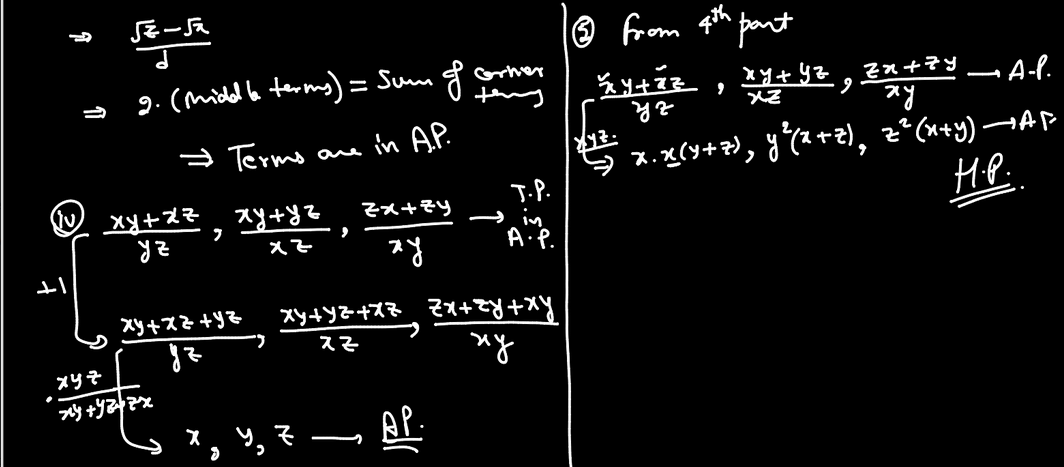 ⇒ √z − √x / d
⇒ 2. (middle terms) = Sum of corner terms
⇒ Terms are in A.P.
(iv) xy+xz / yz , xy+yz / xz , zx+zy / xy → T.P. in A.P.
+1
xy+xz+yz / yz , xy+yz+xz / xz , zx+zy+xy / xy
. xyz / xy+yz+zx
x, y, z → AP.
(5) from 4th part
xy+xz / yz , xy+yz / xz , zx+zy / xy → A.P.
xyz. → x.x(y+z), y²(x+z), z²(x+y) → AP
H.P.